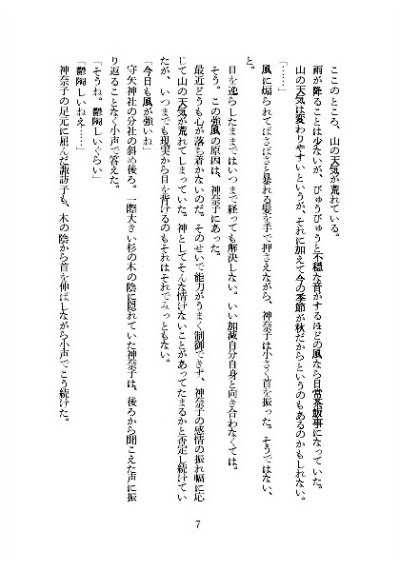 ここのところ、山の天気が荒れている。
雨が降ることは少ないが、びゅうびゅうと不穏な音がするほどの風なら日常茶飯事になっていた。
山の天気は変わりやすいというが、それに加えて今の季節が秋だからというのもあるのかもしれない。
「……」
風に煽られてばさばさと暴れる髪を手で押さえながら、神奈子は小さく首を振った。そうではない、
と。
目を逸らしたままではいつまで経っても解決しない。いい加減自分自身と向き合わなくては。
そう。この強風の原因は、神奈子にあった。
最近どうも心が落ち着かないのだ。そのせいで能力がうまく制御できず、神奈子の感情の振れ幅に応
じて山の天気が荒れてしまっていた。神としてそんな情けないことがあってたまるかと否定し続けてい
たが、いつまでも現実から目を背けるのもそれはそれでみっともない。
「今日も風が強いね」
守矢神社の分社の斜め後ろ。一際大きい杉の木の陰に隠れていた神奈子は、後ろから聞こえた声に振
り返ることなく小声で答えた。
「そうね。鬱陶しいぐらい」
「鬱陶しいねえ……」
神奈子の足元に屈んだ諏訪子も、木の陰から首を伸ばしながら小声でこう続けた。
7